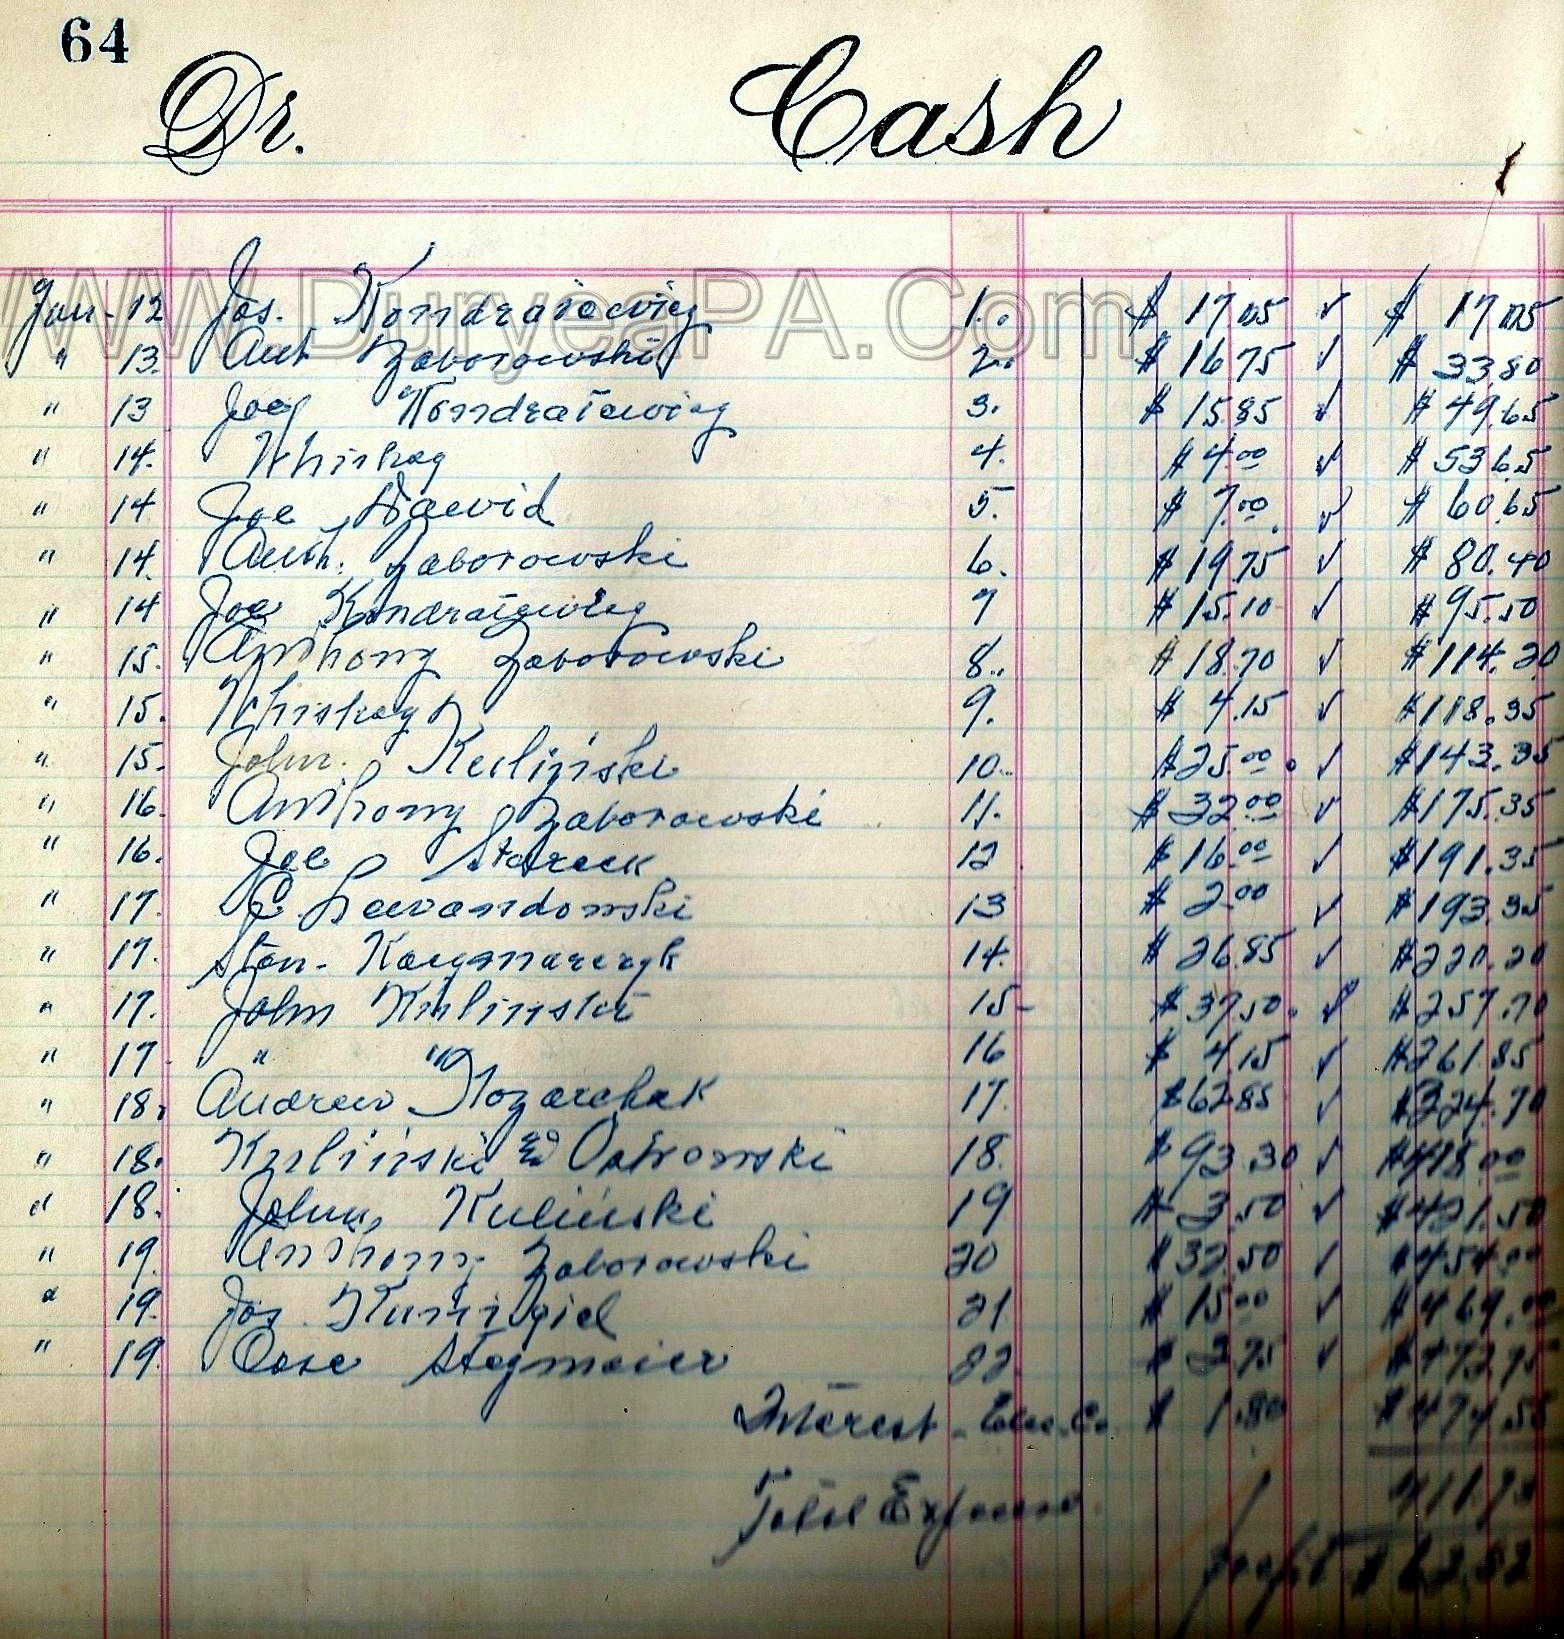 64
Dr. Cash
WWW.DuryeaPA.Com
Jan - 12 Jos. Kondraiewicz 1. $ 17 05 ✓ $ 17 05
" 13. Ant Zaborowski 2. $ 16 75 ✓ $ 33.80
" 13 Joe Kondratewicz 3. $ 15.85 ✓ $ 49.65
" 14. Whiskey 4. $ 4.00 ✓ $ 53 65
" 14 Joe Dawid 5. $ 7.00 ✓ $ 60.65
" 14. Anth. Zaborowski 6. $ 19 75 ✓ $ 80.40
" 14 Joe Kondratewicz 7 $ 15.10 ✓ $ 95.50
" 15. Anthony Zaborowski 8. $ 18.70 ✓ $ 114.20
" 15. Whiskey 9. $ 4.15 ✓ $ 118.35
" 15. John. Kuliński 10. $ 25.00 ✓ $ 143.35
" 16. Anthony Zaborowski 11. $ 32.00 ✓ $ 175.35
" 16. Joe Stareck 12 $ 16.00 ✓ $ 191.35
" 17. Lewandowski 13 $ 2.00 ✓ $ 193.35
" 17. Stan. 14. $ 26.85 ✓ $ 220.20
" 17. John Kulinski 15 - $ 37.50 ✓ $ 257.70
" 17 " " 16 $ 4.15 ✓ $ 261.85
" 18. Andrew 17. $ 62 85 ✓ $ 324.70
" 18. Kuliński & Ostrowski 18. $ 93.30 ✓ $ 418.00
" 18. John Kuliński 19 $ 3.50 ✓ $ 421.50
" 19. Anthony Zaborowski 20 $ 32.50 ✓ $ 454.00
" 19. Jos. 21 $ 15.00 ✓ $ 469.00
" 19. Case Stegmaier 22. $ 3.75 ✓ $ 472.75
Interest - Elec. Co. $ 1.80 $ 474.55
Total Expense 411.73
profit $ 62.82